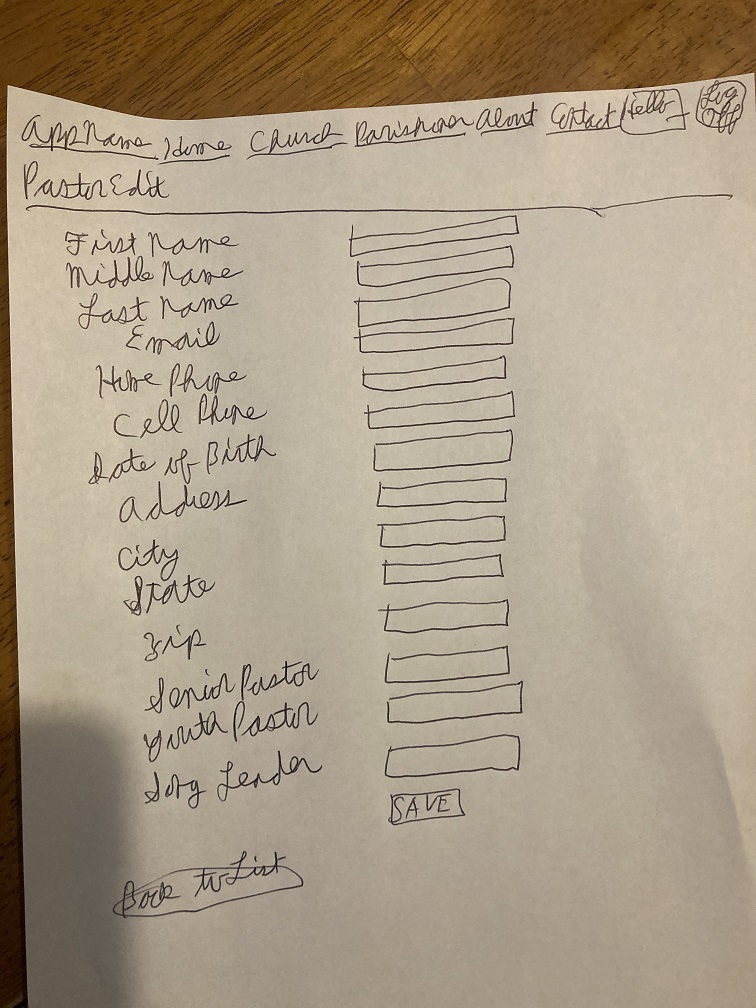 AppName Home Church Parishoner About Contact Hello Log Off
Pastor Edit
First Name
Middle Name
Last Name
Email
Home Phone
Cell Phone
Date of Birth
Address
City
State
Zip
Senior Pastor
Youth Pastor
Song Leader
SAVE
Back to List